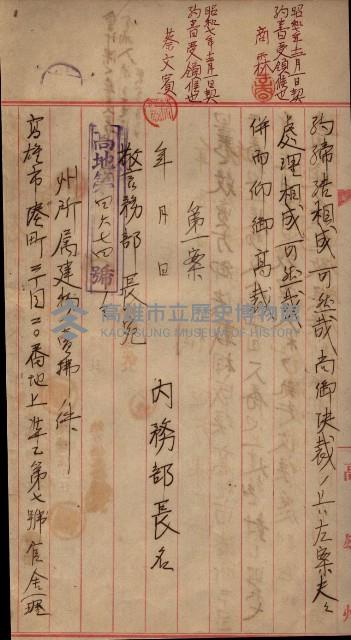 昭和七年十二月一日契
約書受領候也
商霖
昭和七年十二月一日契
約書受領候也
蔡文賓
約締結相成可然哉尚御決裁ノ上ハ左案夫々
処理相成可然哉
併而仰御高裁
第一案
年 月 日
內務部長名
警務部長宛
高地第四六七四號
州所屬建物 件
高雄市 町二丁目二〇番地上 第七號官舍一棟
高雄市立歷史博物館
KAOHSIUNG MUSEUM OF HISTORY
高雄州